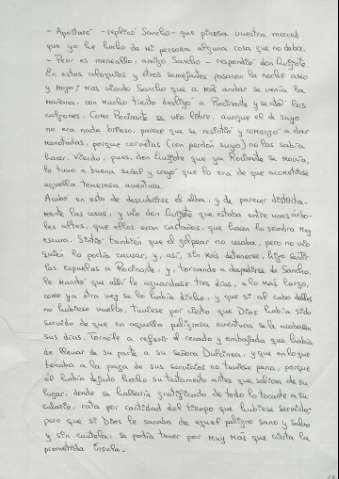 - Apostaré - replicó Sancho - que piensa vuestra merced
que yo he hecho de mi persona alguna cosa que no deba.
- Peor es meneallo, amigo Sancho - respondió don Quijote.
En estos coloquios y otros semejantes pasaron la noche amo
y mozo; mas viendo Sancho que a más andar se venía la
mañana, con mucho tiento desligó a Rocinante y se ató los
calzones. Como Rocinante se vio libre, aunque él de suyo
no era nada brioso, parece que se resintió y comenzó a dar
manotadas, porque corvetas (con perdón suyo) no las sabía
hacer. Viendo, pues, don Quijote que ya Rocinante se movía,
lo tuvo a buena señal y creyó que lo era de que acometiese
aquella temerosa aventura.
Acabó en esto de descubrirse el alba, y de parecer distinta-
mente las cosas, y vio don Quijote que estaba entre unos árbo-
les altos, que ellos eran castaños, que hacen la sombra muy
escura. Sintió también que el golpear no cesaba, pero no vio
quién lo podía causar, y, así, sin más detenerse, hizo sentir
las espuelas a Rocinante, y, tornando a despedirse de Sancho,
le mandó que allí le aguardase tres días, a lo más largo,
como ya otra vez se lo había dicho, y que si al cabo dellos
no hubiese vuelto, tuviese por cierto que Dios había sido
servido de que en aquella peligrosa aventura se le acabasen
sus días. Tornóle a referir el recado y embajada que había
de llevar de su parte a su señora Dulcinea, y que en lo que
tocaba a la paga de sus servicios no tuviese pena, porque
él había dejado hecho su testamento antes que saliera de su
lugar, donde se hallaría gratificado de todo lo tocante a su
salario, rata por cantidad del tiempo que hubiese servido;
pero que si Dios le sacaba de aquel peligro sano y salvo
y sin cautela, se podía tener por muy más que cierta la
prometida ínsula.